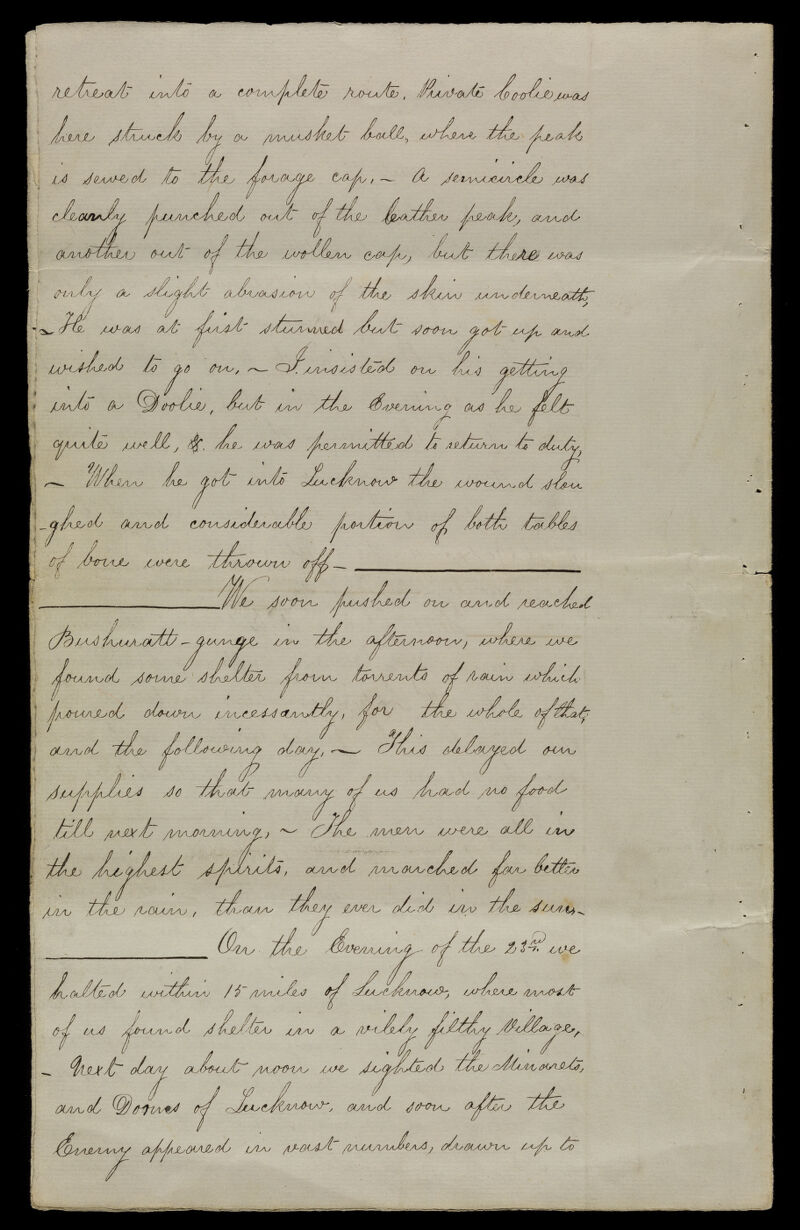 retreat into a complete route. Private Coolie was
here struck by a musket ball, where the peak
is sewed to the forage cap. – A semicircle was
cleanly punched out of the leather peak, and
another out of the wollen cap, but there was
only a slight abrasion of the skin underneath,
– He was at first stunned but soon got up and
wished to go on. – I insisted on his getting
into a Doolie, but in the Evening as he felt
quite well, &. he was permitted to return to duty,
– When he got into Lucknow the wound slou
-ghed and considerable portion of both tables
of bone were thrown off –
We soon pushed on and reached
Bushuratt-gunge in the afternoon, where we
found some shelter from torrents of rain which
poured down incessantly, for the whole of that,
and the following day, – This delayed our
supplies so that many of us had no food
till next morning, – The men were all in
the highest spirits, and marched far better
in the rain, than they ever did in the sun, –
On the Evening of the 23rd. we
halted within 15 miles of Lucknow, where most
of us found shelter in a vilely filthy Village,
– Next day about noon we sighted the Minarets,
and Domes of Lucknow, and soon after the
Enemy appeared in vast numbers, drawn up to